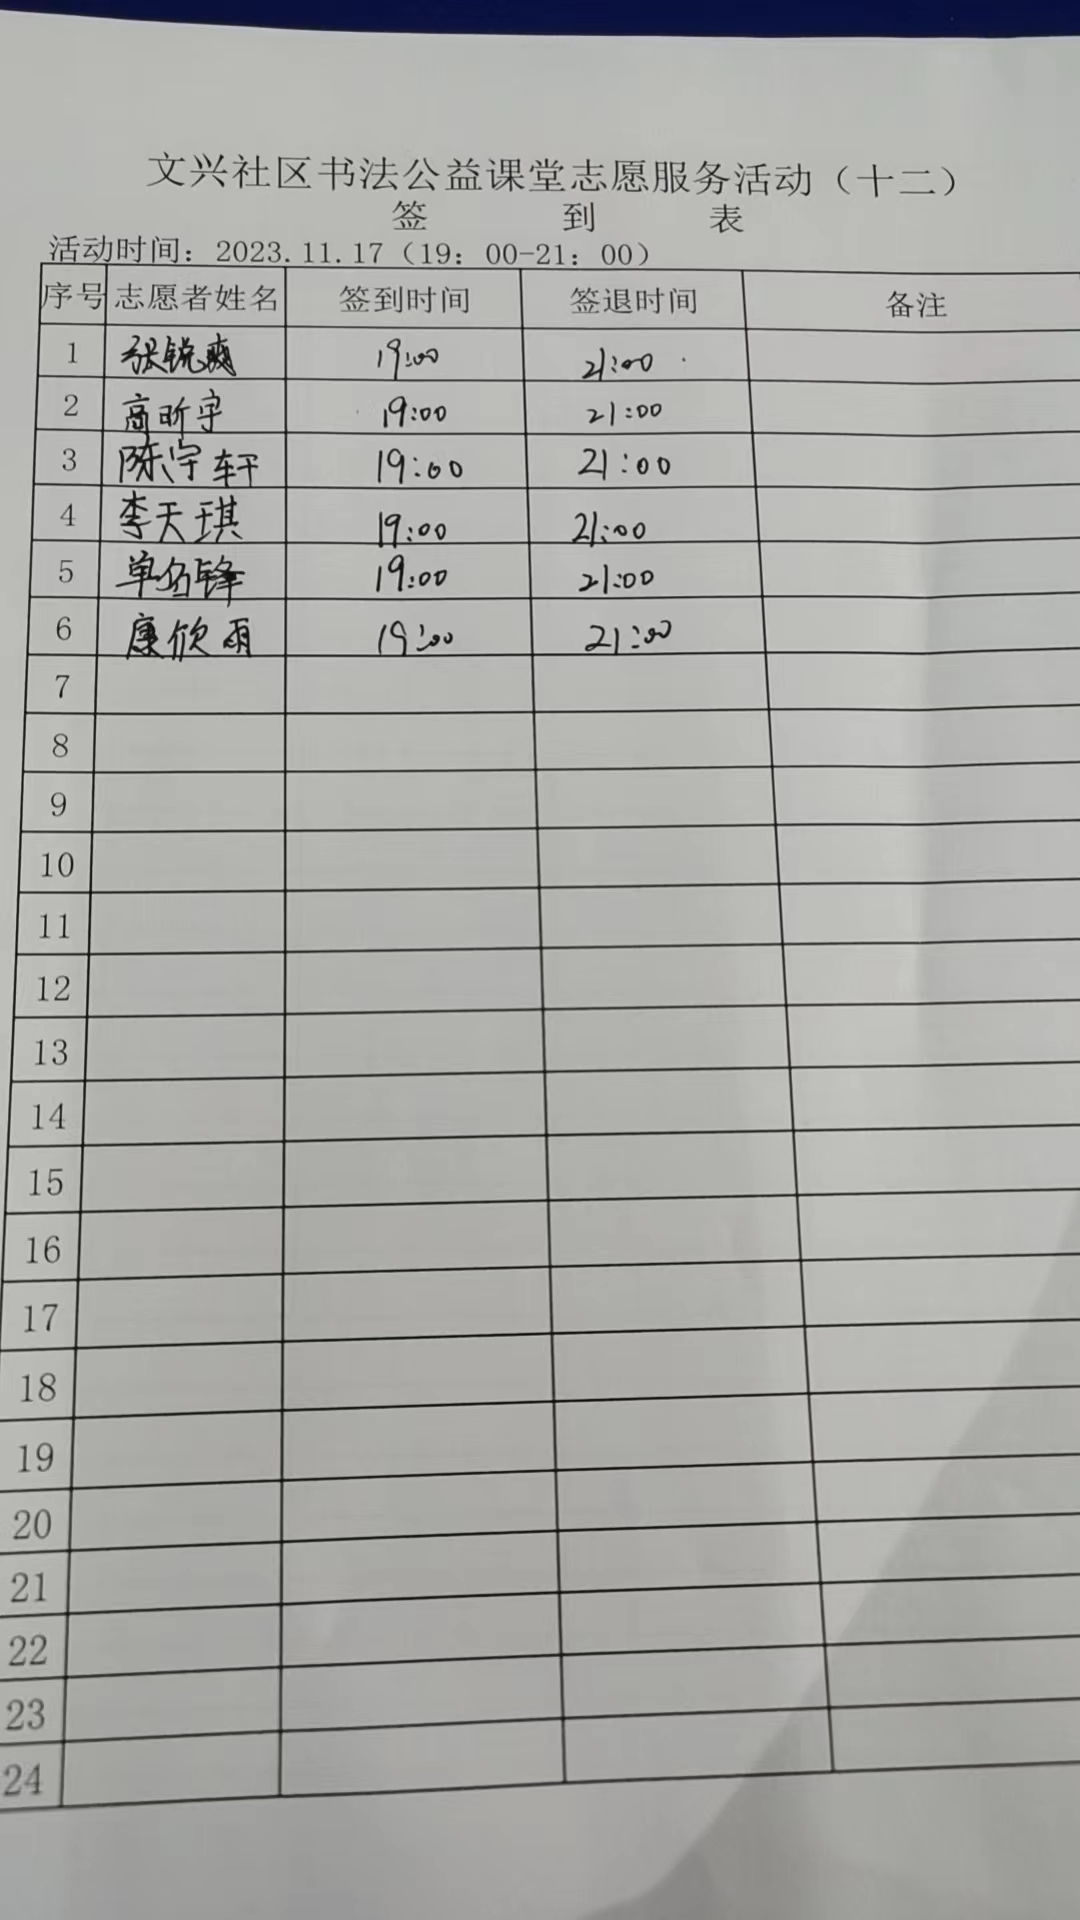 文兴社区书法公益课堂志愿服务活动（十二）
签 到 表
活动时间：2023.11.17（19：00-21：00）
序号 志愿者姓名 签到时间 签退时间 备注
1 张锐爽 19:00 21:00
2 高昕宇 19:00 21:00
3 陈宇轩 19:00 21:00
4 李天琪 19:00 21:00
5 单 锋 19:00 21:00
6 康欣雨 19:00 21:00
7
8
9
10
11
12
13
14
15
16
17
18
19
20
21
22
23
24